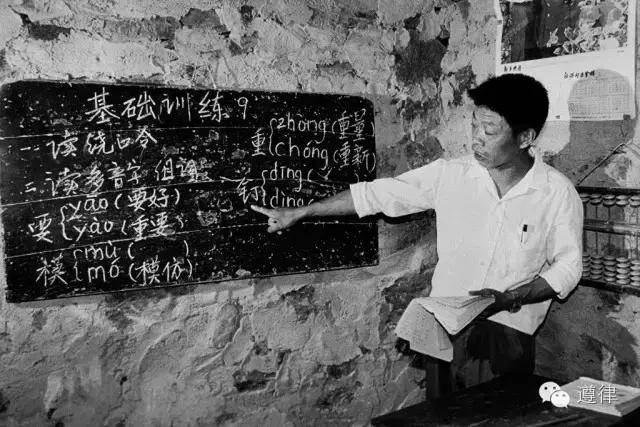 基础训练9
一 读绕口令
二 读多音字 组词
要 yào (要好)
yào (重要)
模 mú ( )
mó (模仿)
重 zhòng (重量)
chóng (重新)
钉 dīng (
dìng (
遵律